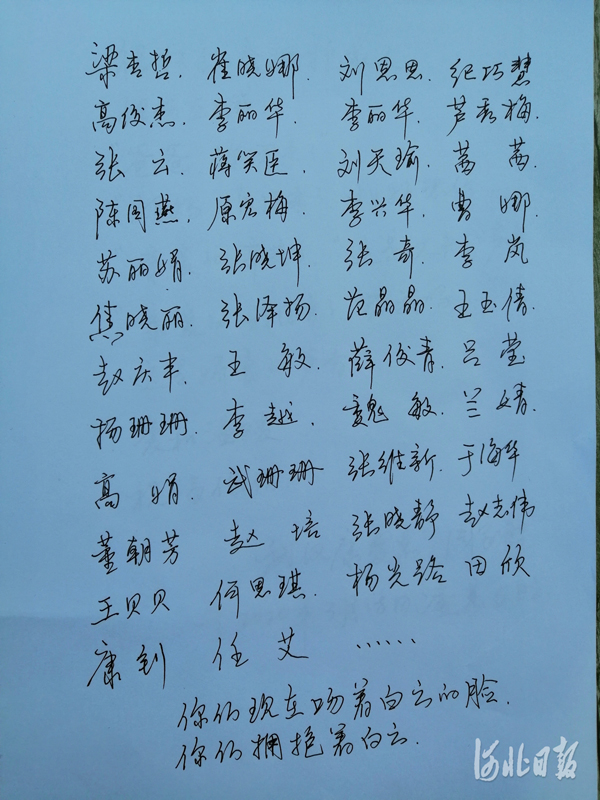 梁杏哲. 崔晓娜. 刘思思. 纪巧慧
高俊杰. 李丽华. 李丽华. 芦秀梅.
张云. 蒋笑臣. 刘天瑜. 茜茜.
陈国燕. 原宏梅. 李兴华. 曹娜.
苏丽娟. 张晓坤. 张奇. 李岚
焦晓丽. 张泽扬. 范晶晶. 王玉倩.
赵庆丰. 王敏. 薛俊青. 吕莹
杨珊珊. 李越. 魏敏. 兰婧.
高娟. 武珊珊 张维新. 于海华
董朝芳 赵培 张晓静 赵志伟
王贝贝 何思琪. 杨光路 田欣
康钊 任艾 ……
你们现在吻着白云的脸.
你们拥抱着白云.
河北日报